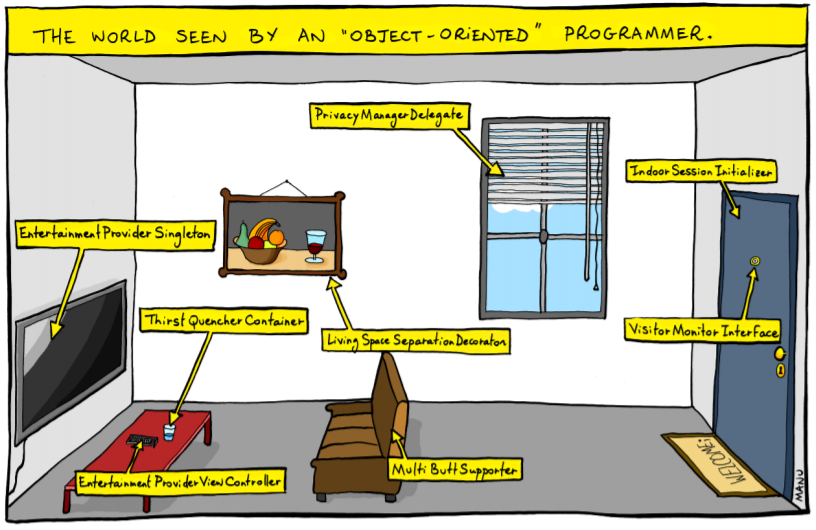 THE WORLD SEEN BY AN "OBJECT-ORIENTED" PROGRAMMER.
PrivacyManagerDelegate
IndoorSessionInitializer
EntertainmentProviderSingleton
ThirstQuencherContainer
LivingSpaceSeparationDecorator
VisitorMonitorInterface
MultiButtSupporter
EntertainmentProviderViewController
WELCOME!
MANU